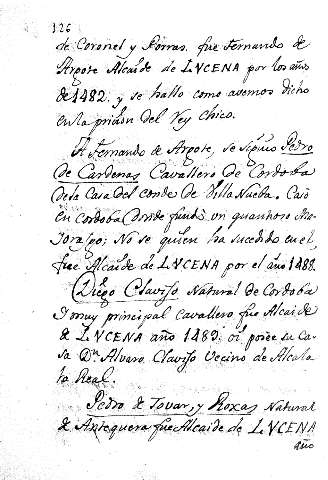 126
de Coronel y Porras. fue Fernando de
Argote Alcaide de LVCENA por los años
de 1482. y se hallo como avemos dicho
en la prision del Rey chico.
A Fernando de Argote, se siguio Pedro
de Cardenas Cavallero de Cordoba
de la Casa del conde de Villa Nueba. Caso
en Cordoba Donde fundo un quanhoso Ma
Jorasgo; No se quien ha sucedido en el,
fue Alcaide de LVCENA por el año 1488.
Diego Clavijo Natural de Cordoba
I muy principal cavallero fue Alcaide
de LVCENA año 1489. oi posee su ca
sa Dn. Alvaro Clavijo Vecino de Alcala
la Real.
Pedro de Tovar, y Roxas Natural
de Antequera fue Alcaide de LVCENA
año